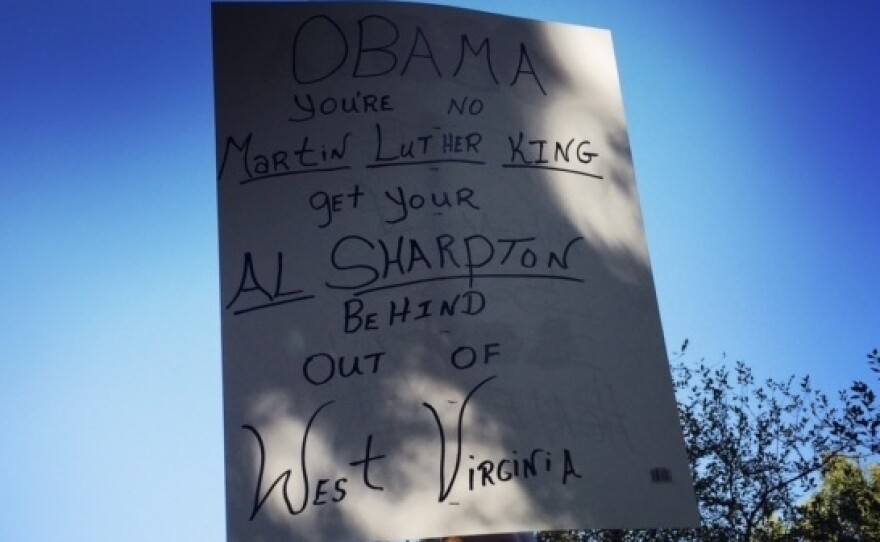 OBAMA
YOU'RE NO
Martin LUTHER KING
get your
AL SHARPTON
BEHIND
OUT OF
West Virginia